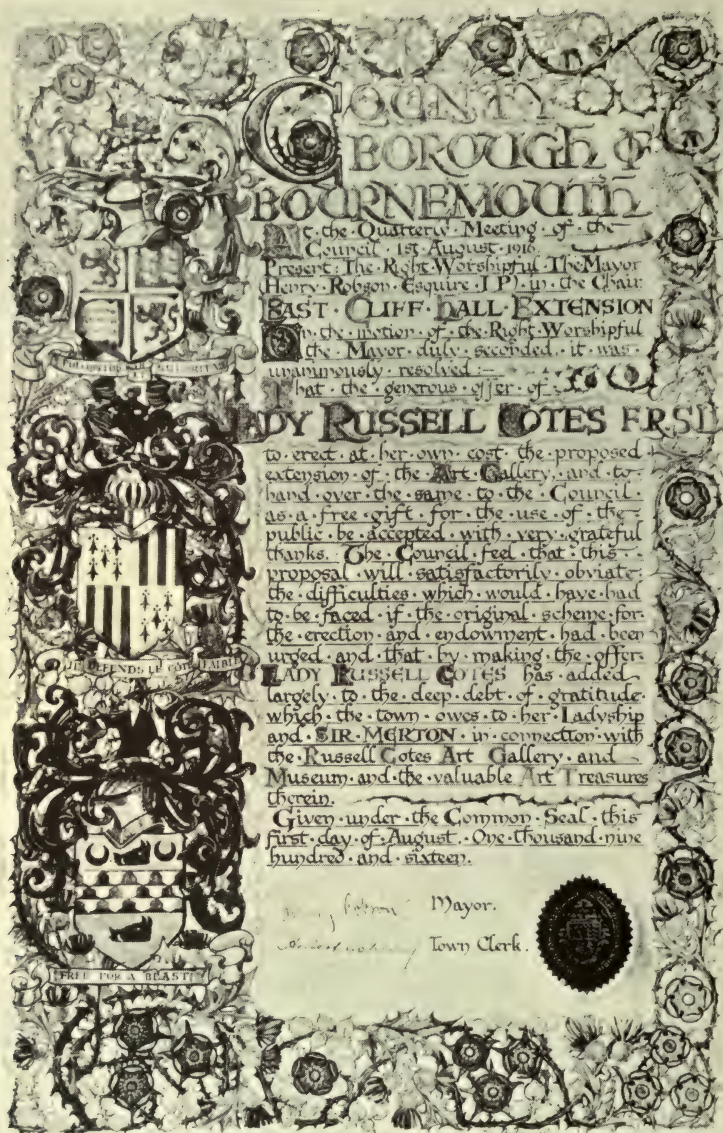 COUNTY
BOROUGH OF
BOURNEMOUTH
At · the · Quarterly · Meeting · of · the ·
Council · 1st · August · 1916 ·
Present · The · Right · Worshipful · The Mayor
(Henry · Robson · Esquire · J.P.) · in · the · Chair.
EAST · CLIFF · HALL · EXTENSION
On · the · motion · of · the · Right · Worshipful
the · Mayor · duly · seconded · it · was ·
unanimously · resolved :—
That · the · generous · offer · of ·
LADY RUSSELL COTES F.R.S.L
to · erect · at · her · own · cost · the · proposed
extension · of · the · Art · Gallery · and · to ·
hand · over · the · same · to · the · Council ·
as · a · free · gift · for · the · use · of · the ·
public · be · accepted · with · very · grateful
thanks. The · Council · feel · that · this ·
proposal · will · satisfactorily · obviate ·
the · difficulties · which · would · have · had
to · be · faced · if · the · original · scheme · for ·
the · erection · and · endowment · had · been
urged · and · that · by · making · the · offer ·
LADY RUSSELL COTES has · added
largely · to · the · deep · debt · of · gratitude ·
which · the · town · owes · to · her · Ladyship
and · SIR · MERTON · in · connection · with
the · Russell Cotes Art Gallery · and
Museum · and · the · valuable · Art Treasures
therein.
Given · under · the · Common · Seal · this ·
first · day · of · August · One · thousand · nine
hundred · and · sixteen.
Mayor.
Town Clerk.
JE DEFENDS LE COTE FAIBLE
FREE FOR A BLAST